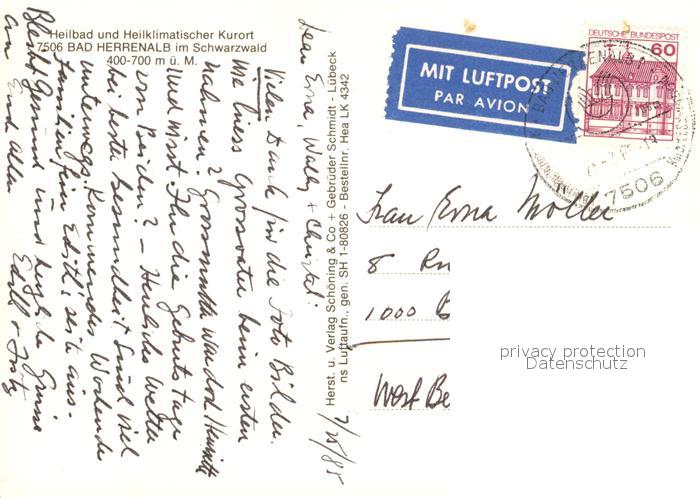 Heilbad und Heilklimatischer Kurort
7506 BAD HERRENALB im Schwarzwald
400-700 m ü. M.
Herst. u. Verlag Schöning & Co + Gebrüder Schmidt - Lübeck
ns Luftaufn., gen. SH 1-80826 - Bestellnr. Hea LK 4342
7/25/85
Dear Erna, Wally + Christel!
Vielen Dank für die Foto Bilder.
Wie hiess Grossvater beim ersten
Nahmen? Grossmutter war doch Henriette
Und wisst Ihr die Geburtstage
von Beiden? – Herliches Wetter
bei bester Gesundheit sind viel
unterwegs. Kommendes Wochende
Familien Edith's seits aus.
und herzliche Grüsse
an Euch Allen
Edith + Fritz
MIT LUFTPOST
PAR AVION
DEUTSCHE BUNDESPOST
60
7506
Frau Erna Moller
8
1000 B
West Be
privacy protection
Datenschutz